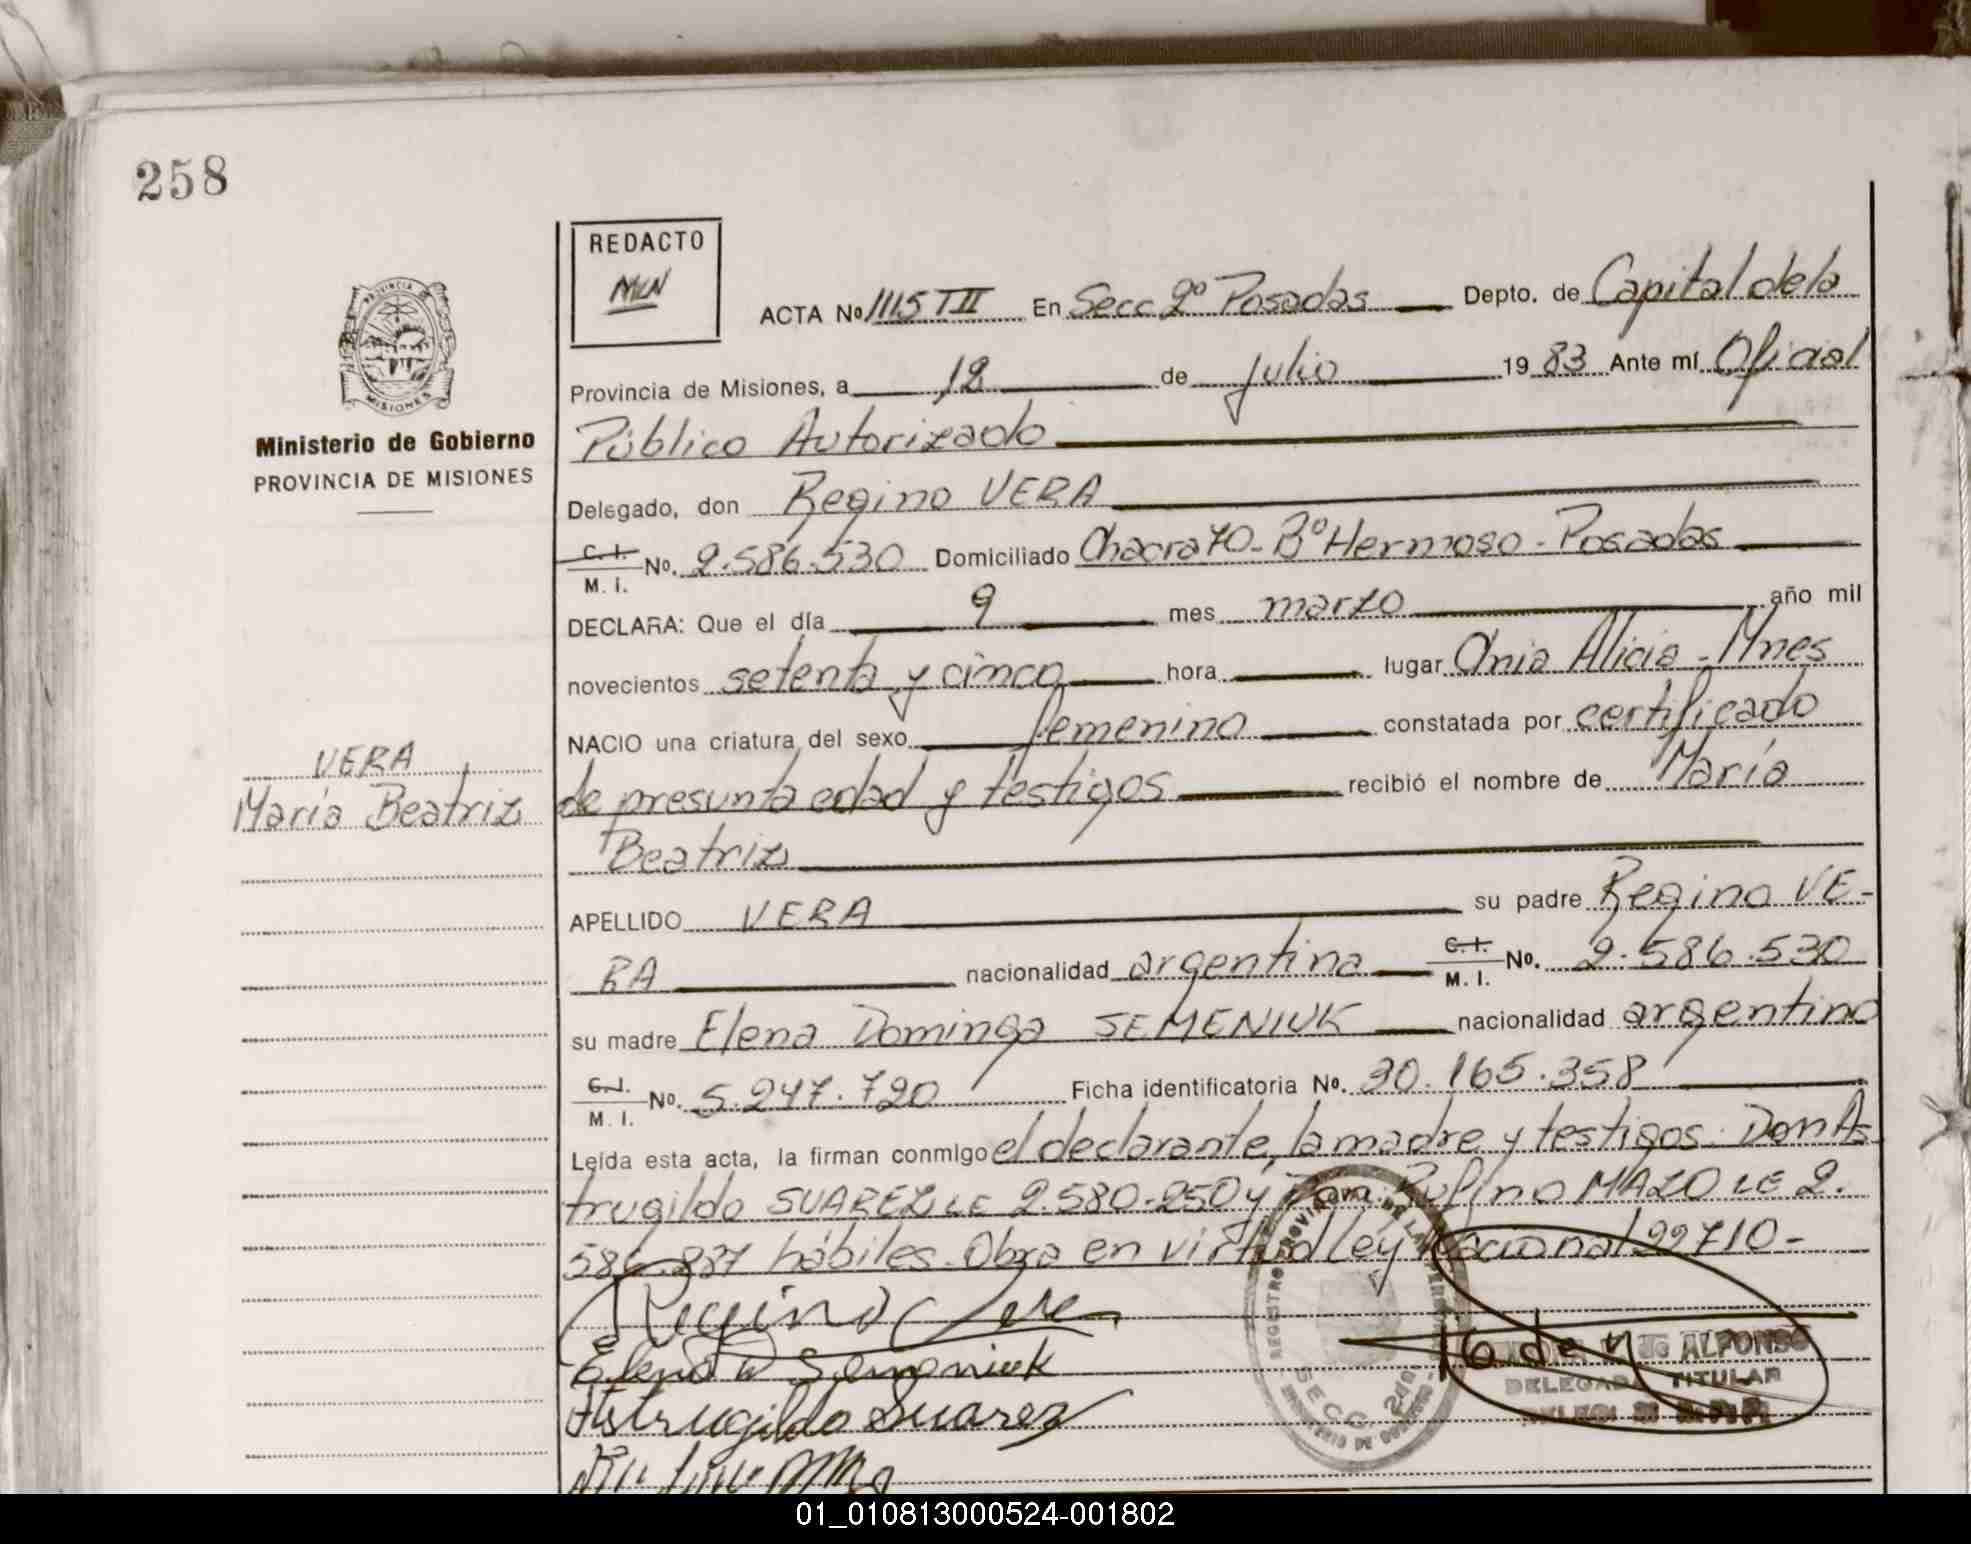 258
REDACTO
ACTA Nº 1115 TII En Secc 2º Posadas Depto. de Capital de la
Provincia de Misiones, a 12 de julio 1983 Ante mí Oficial
Público Autorizado
Ministerio de Gobierno
PROVINCIA DE MISIONES
Delegado, don Regino VERA
C. I. M. I. No. 2.586.530 Domiciliado Chacra 70 - Bº Hermoso - Posadas
DECLARA: Que el día 9 mes marzo año mil
novecientos setenta y cinco hora lugar Cnia Alicia - Mnes
NACIO una criatura del sexo femenino constatada por certificado
VERA
María Beatriz
de presunta edad y testigos recibió el nombre de María
Beatriz
APELLIDO VERA su padre Regino VE-
RA nacionalidad argentina C. I. M. I. No. 2.586.530
su madre Elena Dominga SEMENIUK nacionalidad argentina
C. I. M. I. No. 5.247.720 Ficha identificatoria No. 30.165.358
Leída esta acta, la firman conmigo el declarante, la madre y testigos: Don As
trugildo SUAREZ LE 2.580.250 y Rufino MAZO LE 2.
586.887 hábiles. Obra en virtud Ley Nacional 22710-
Elena D Semeniuk
Astrugildo Suarez
de ALFONSO
DELEGADA TITULAR
01_010813000524-001802